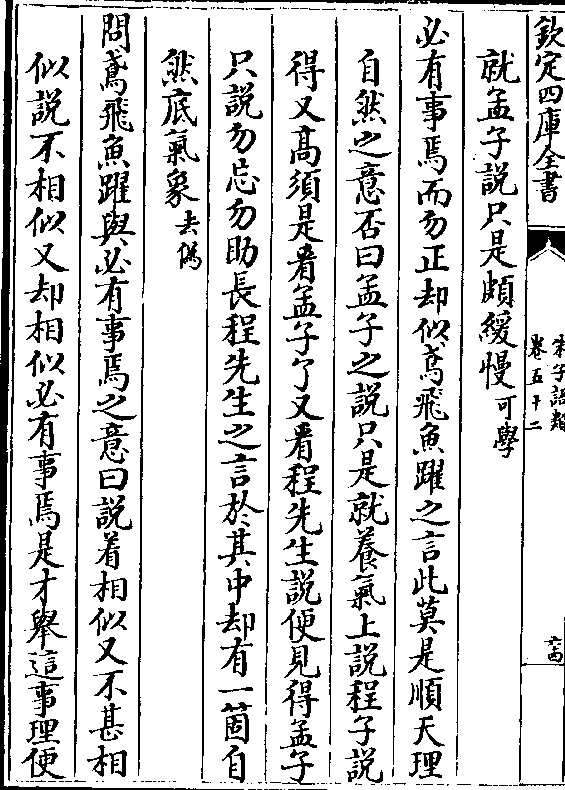 欽定四庫全書
朱子語類
卷五十二
六四
就孟子説只是頗緩慢可學
必有事焉而勿正却似鳶飛魚躍之言此莫是順天理
自然之意否曰孟子之説只是就養氣上説程子説
得又髙須是看孟子了又看程先生説便見得孟子
只説勿忘勿助長程先生之言於其中却有一箇自
然底氣象去偽
問鳶飛魚躍與必有事焉之意曰説着相似又不甚相
似説不相似又却相似必有事焉是才舉這事理便